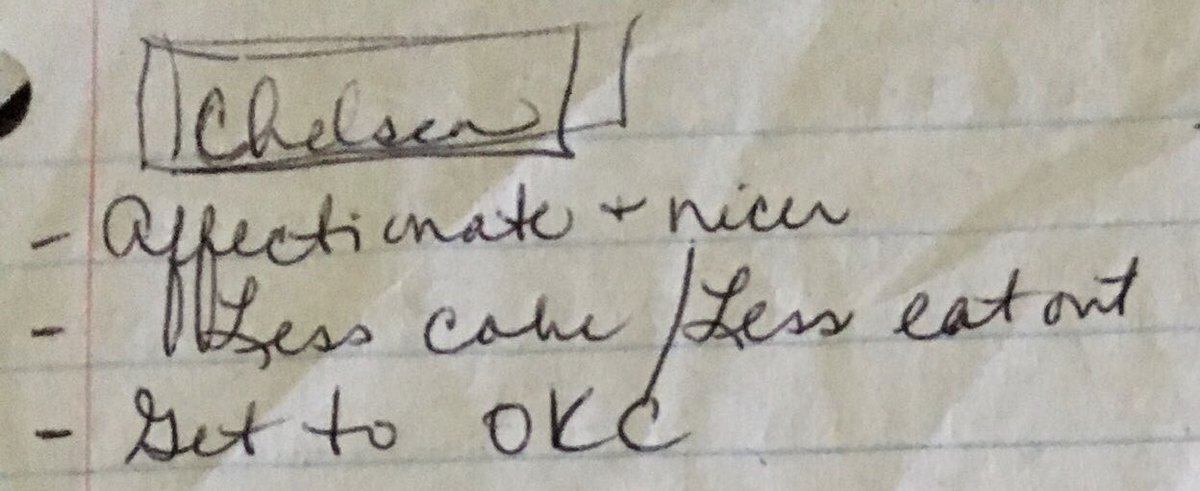 Chelsea
- Affectionate + nicer
- Less coke / Less eat out
- Get to OKC